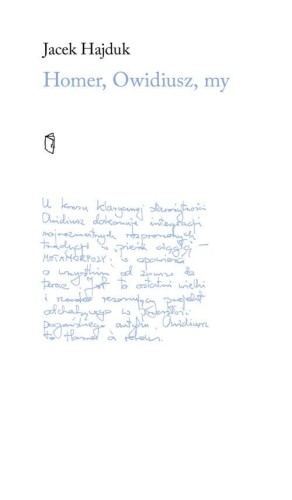 Jacek Hajduk
Homer, Owidiusz, my
U kresu klasycznej starożytności
Owidiusz dokonuje integracji
najrozmaitszych rozproszonych
tradycji w „pieśń ciągłą” –
METAMORFOZY: opowieść
o wszystkim od zawsze do
teraz. Jest to ostatni wielki
i
projekt
odchodzącego w przeszłość
pogańskiego antyku. Owidiusz
to Homer à rebours.